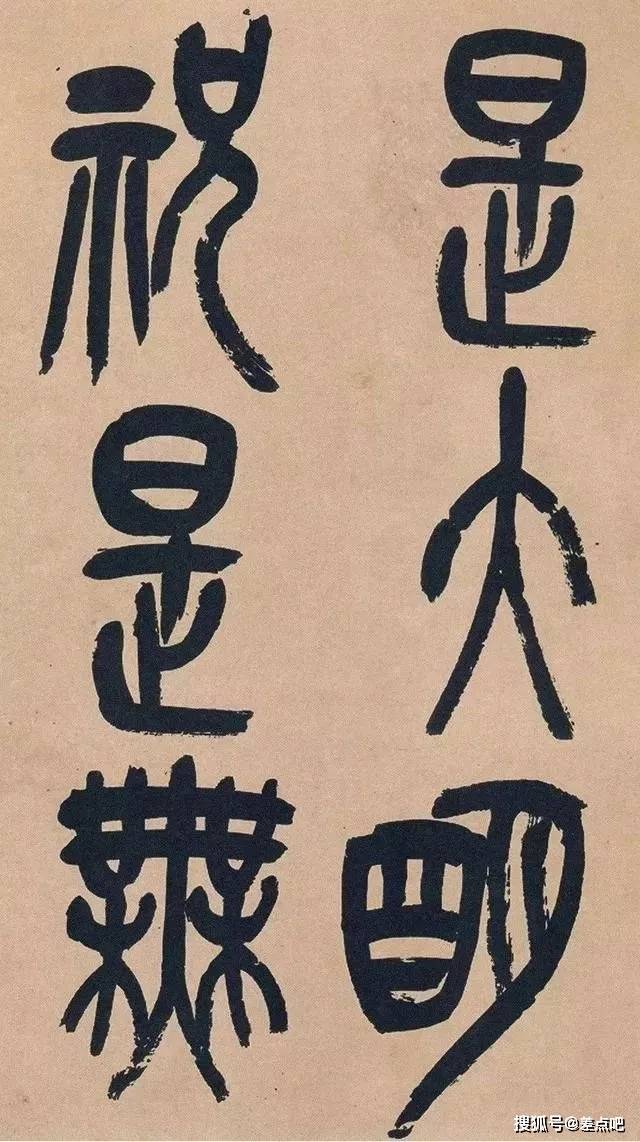 是大明
祝是無
搜狐号@差点吧